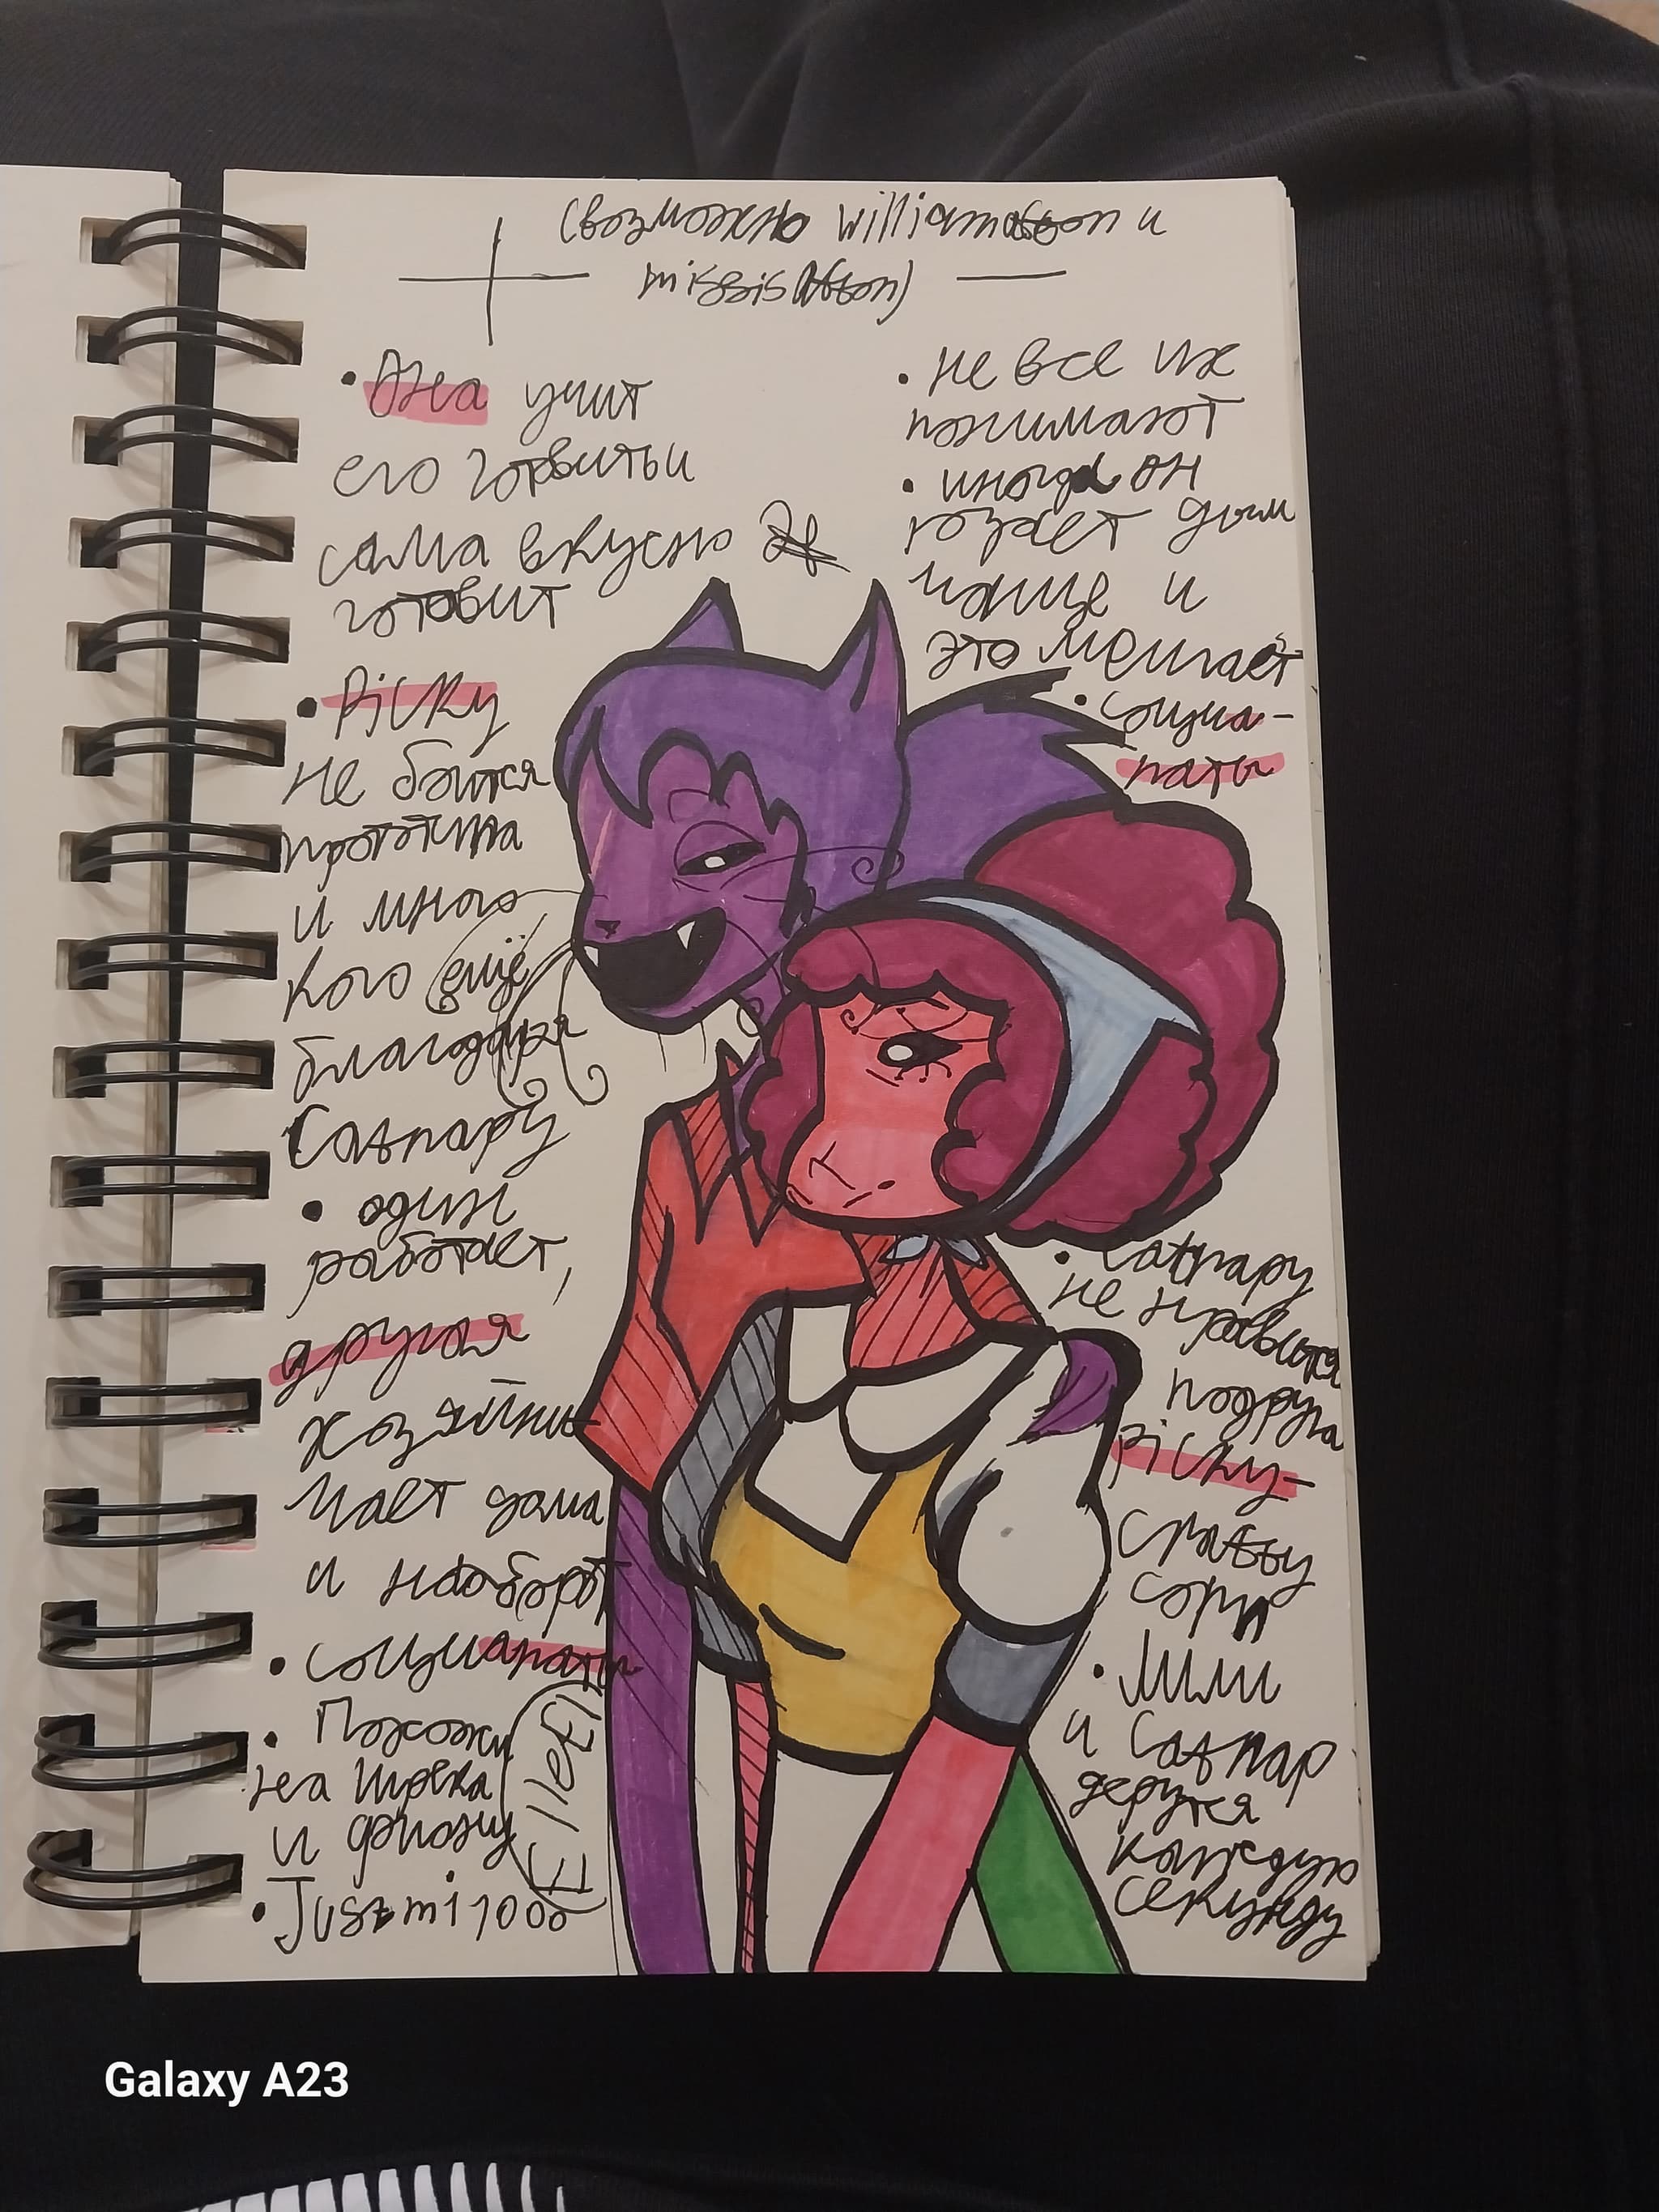 (возможно William afton и
missis Afton)
• Она учит
его готовить и
сама вкусно
готовит
• Picky
не боится
прототипа
и много
кого ещё
благодаря
Catнапу
• один
работает,
другая
хозяйни-
чает дома
и наоборот
• социапаты
• Похожи
на Шрека
и фиону
• Juszmi1000
(E lief)
• не все их
понимают
• иногда он
дым
чаще и
это мешает
• социа-
паты
• Catнапу
не нравится
подруга
Picky-
crafty
corn
• Лили
и Catнап
дерутся
каждую
секунду
Galaxy A23